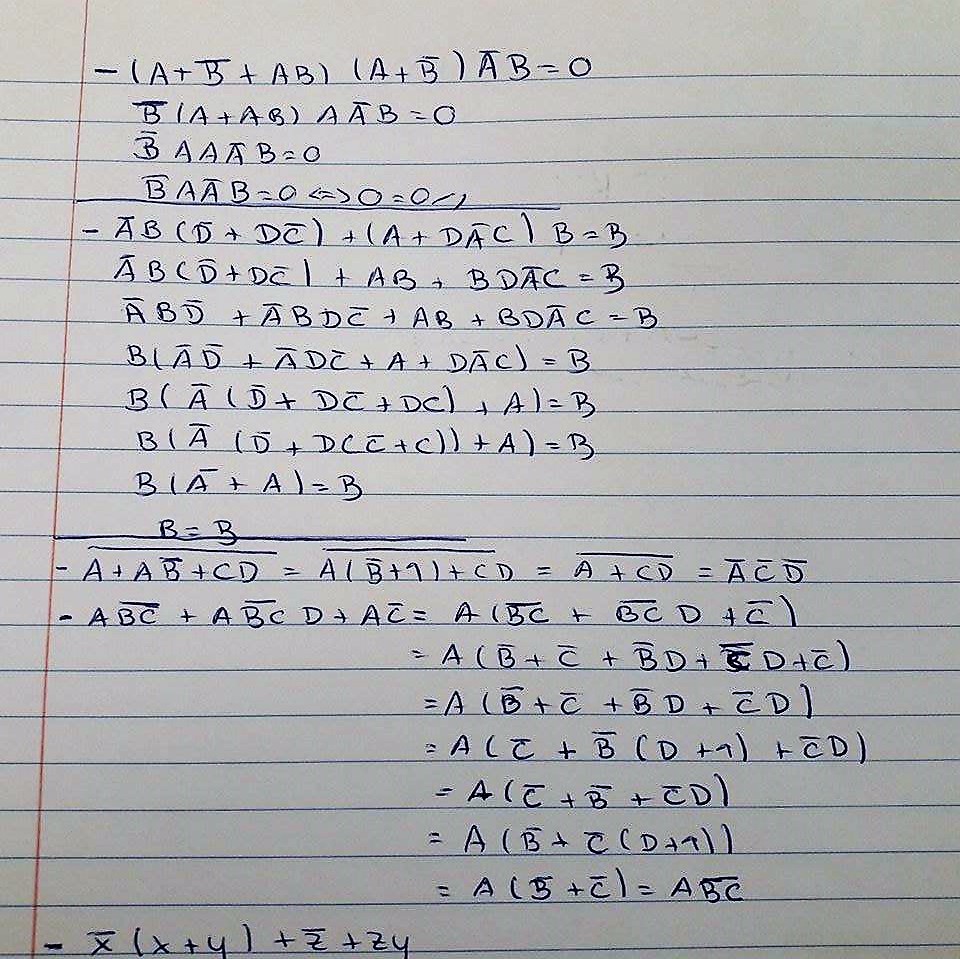 - (A + B̅ + AB) (A + B̅) A̅ B = 0
B̅ (A + AB) A A̅ B = 0
B̅ A A A̅ B = 0
B̅ A A̅ B = 0 <=> 0 = 0 ✓
- A̅ B (D̅ + D C̅) + (A + D A̅ C) B = B
A̅ B (D̅ + D C̅) + AB + B D A̅ C = B
A̅ B D̅ + A̅ B D C̅ + AB + B D A̅ C = B
B (A̅ D̅ + A̅ D C̅ + A + D A̅ C) = B
B (A̅ (D̅ + D C̅ + DC) + A) = B
B (A̅ (D̅ + D (C̅ + C)) + A) = B
B (A̅ + A) = B
B = B
- \overline{A + A B̅ + CD} = \overline{A (B̅ + 1) + CD} = \overline{A + CD} = A̅ C̅ D̅
- A \overline{BC} + A \overline{BC} D + A C̅ = A (\overline{BC} + \overline{BC} D + C̅)
= A (B̅ + C̅ + B̅ D + C̅ D + C̅)
= A (B̅ + C̅ + B̅ D + C̅ D)
= A (C̅ + B̅ (D + 1) + C̅ D)
= A (C̅ + B̅ + C̅ D)
= A (B̅ + C̅ (D + 1))
= A (B̅ + C̅) = A \overline{BC}
- x̅ (x + y) + z̅ + zy